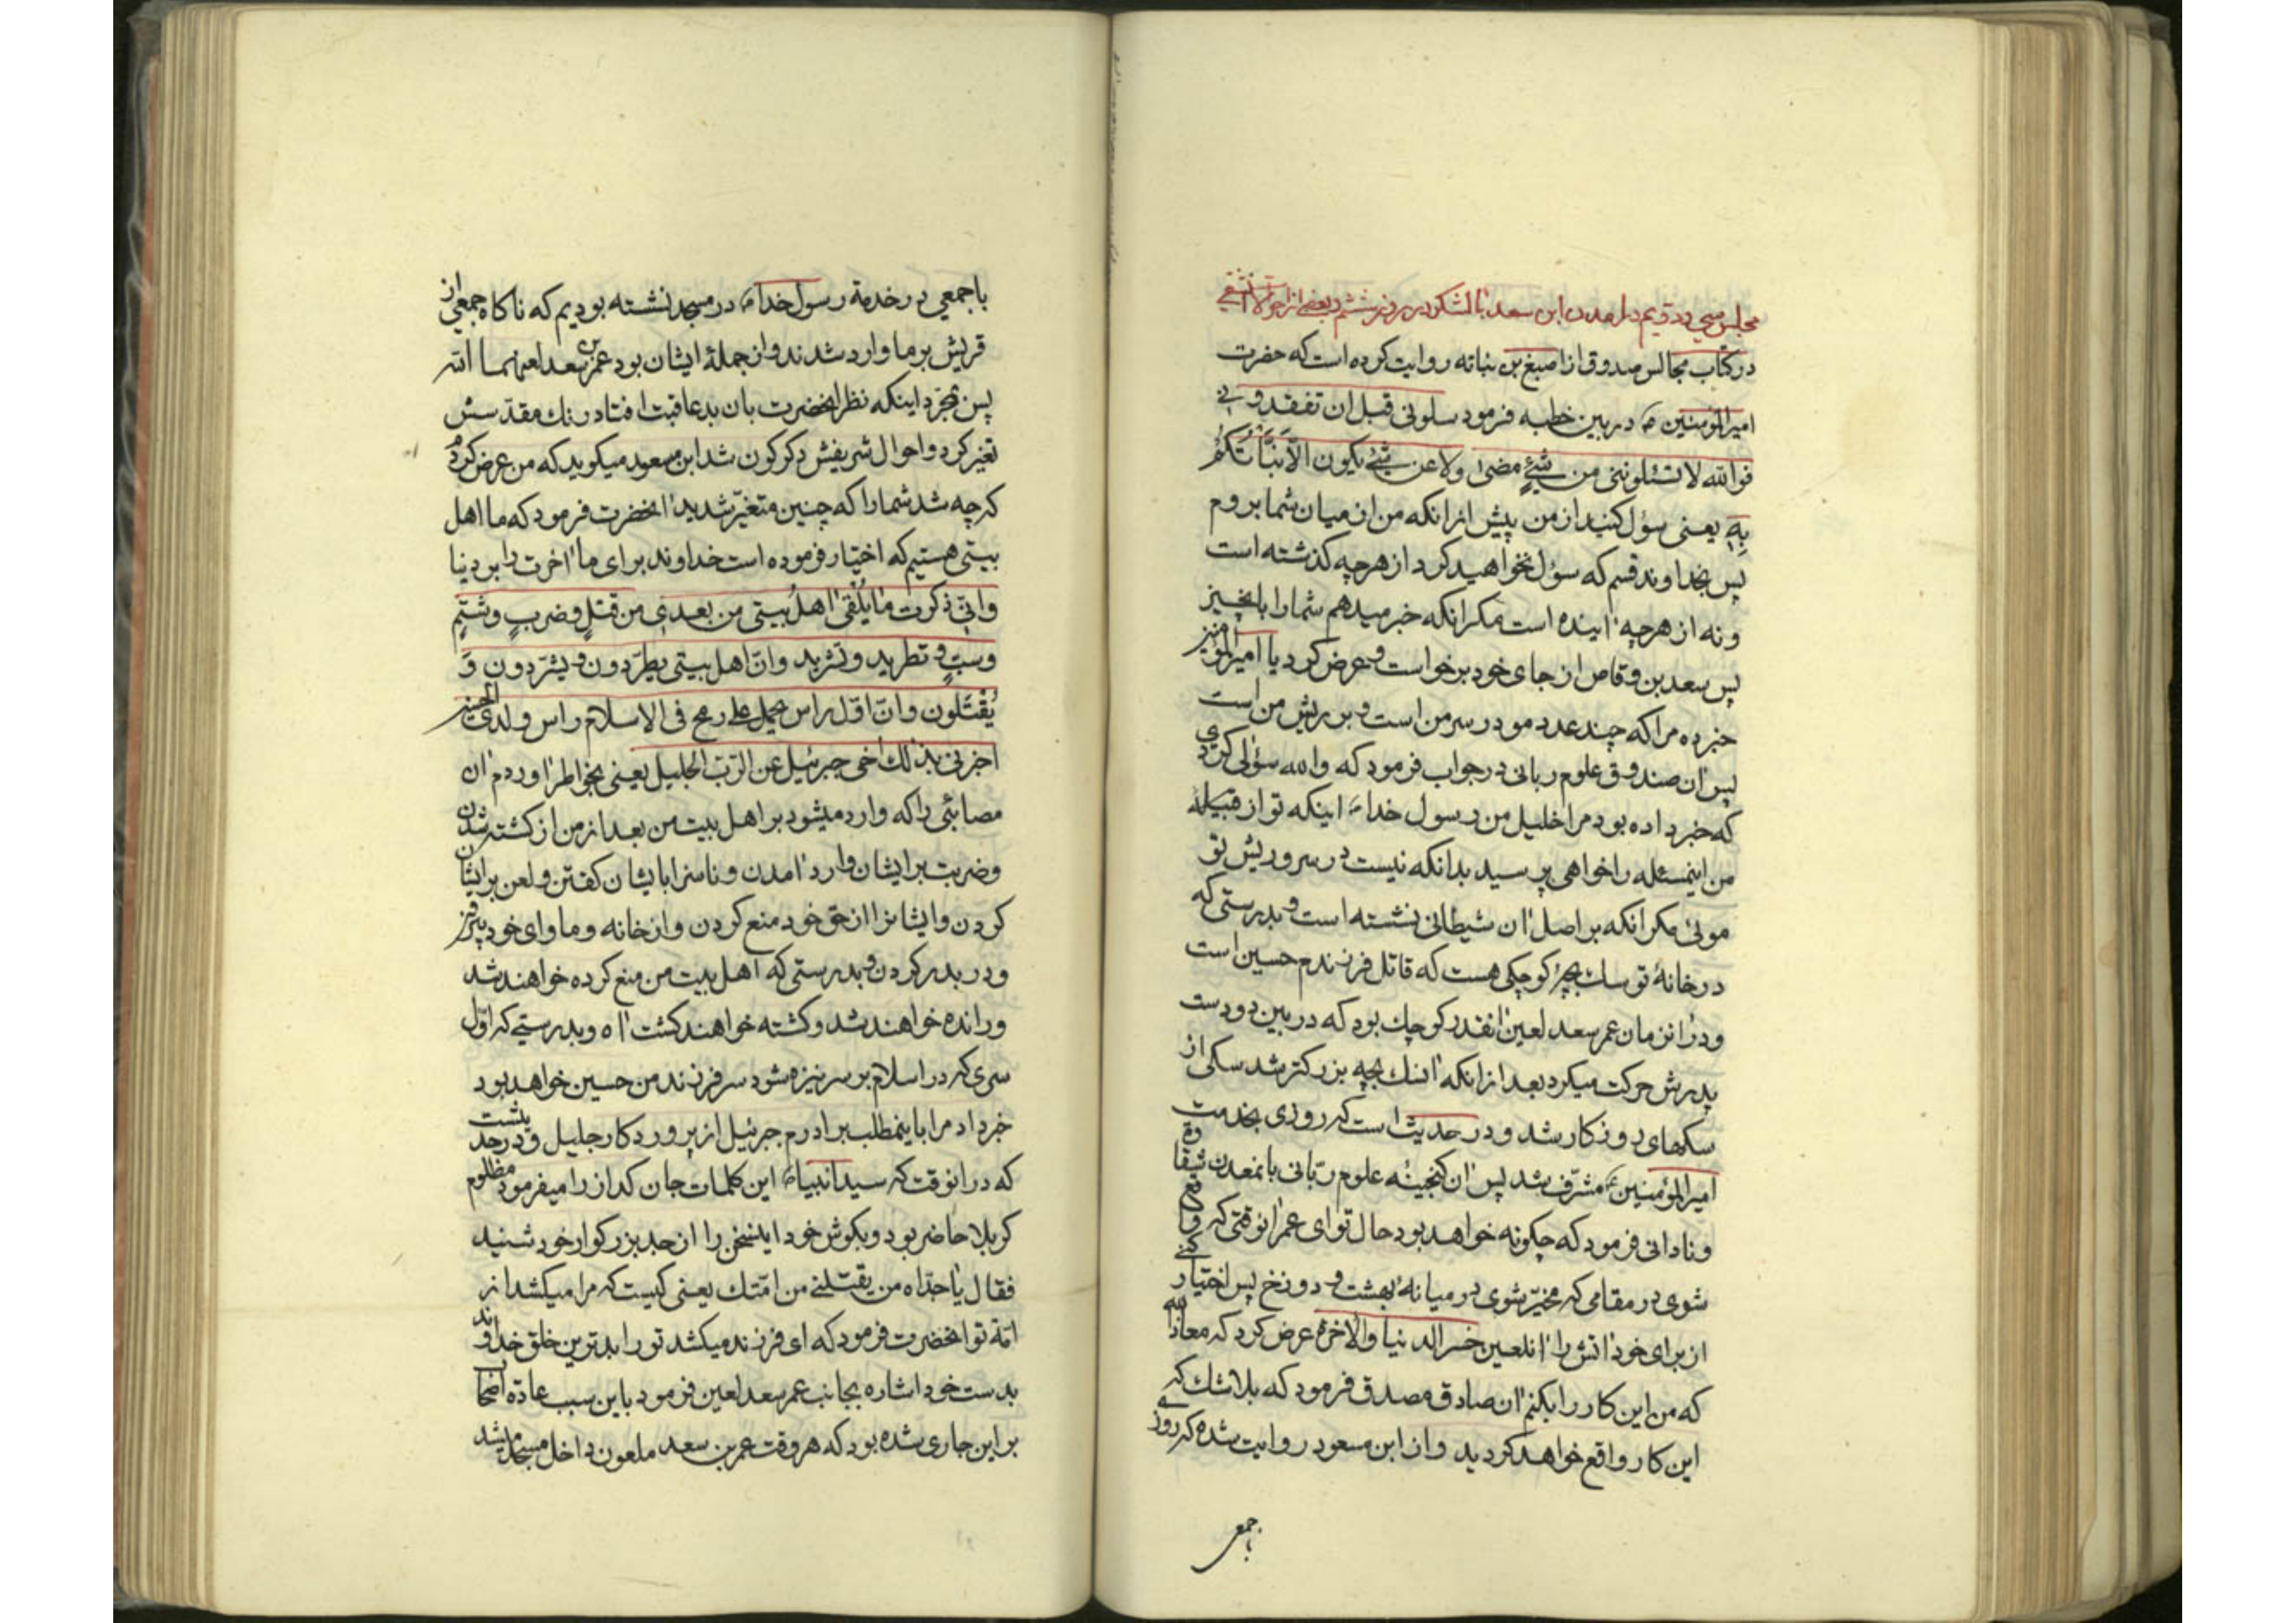 مجلس سی و دویم در امدن ابن سعد با لشکر در روز ششم و بعضی از
در کتاب مجالس صدوق از اصبغ بن نباته روایت کرده است که حضرت
امیرالمؤمنین ع در بین خطبه فرمود سلونی قبل ان تفقدونی
فوالله لا تسئلوننی من شیءٍ مضی ولا عن شیء یکون الّا نبّأتکُم
بِهِ یعنی سؤل کنید از من پیش از انکه من از میان شما بروم
پس بخداوند قسم که سؤل نخواهید کرد از هرچه کذشته است
و نه از هرچه اینده است مکر انکه خبر میدهم شما را بانچیز
پس سعد بن وقاص از جای خود برخواست و عرض کرد یا امیرالمؤمنین
خبر ده مرا که چند عدد مو در سر من است و بر ریش من است
پس ان صندوق علوم ربانی در جواب فرمود که والله سؤلی کردی
که خبر داده بود مرا خلیل من رسول خدا ص اینکه تو از قبیله
من اینمسئله را خواهی پرسید بدانکه نیست در سر و ریش تو
موئی مکر انکه بر اصل ان شیطانی نشسته است و بدرستی که
در خانهٔ تو سک بچهٔ کوچکی هست که قاتل فرزندم حسین است
و در انزمان عمر سعد لعین انقدر کوچک بود که در بین دو دست
پدرش حرکت میکرد بعد از انکه انسک بچه بزرکتر شد سکی از
سکهای روزکار شد و در حدیث است که روزی بخدمت
امیرالمؤمنین ع مشرّف شد پس ان کنجینهٔ علوم ربّانی بانمعدن شقاوة
و نادانی فرمود که چکونه خواهد بود حال تو ای عمر انوقتی که واقع
شوی در مقامی که مخیّر شوی در میانهٔ بهشت و دوزخ پس اختیار کنے
از برای خود اتش را انلعین خسر الدنیا والاخرة عرض کرد که معاذالله
که من این کار را بکنم ان صادق مصدق فرمود که بلاشک که
این کار واقع خواهد کردید و از ابن مسعود روایت شده که روزی
با جمعی
با جمعی در خدمة رسول خدا ص در مسجد نشسته بودیم که ناکاه جمعی از
قریش بر ما وارد شدند و از جملهٔ ایشان بود عمر بن سعد لعنهما الله
پس بمجرّد اینکه نظر انحضرت بان بدعاقبت افتاد رنک مقدّسش
تغیر کرد و احوال شریفش دکرکون شد ابن مسعود میکوید که من عرض کردم
که چه شد شما را که چنین متغیّر شدید انحضرت فرمود که ما اهل
بیتی هستیم که اختیار فرموده است خداوند برای ما اخرت را بر دنیا
وانّی ذکرت ما یُلقی اهلُ بیتی من بعدی من قتلٍ وضربٍ وشتمٍ
وسبٍّ و تطرید وتشرید وانّ اهل بیتی یطرّدون و یشرّدون وَ
یُقْتَلون وانّ اوّل راس یحمل علی رمح فی الاسلام راس ولدی الحسین
اخبرنی بذلک اخی جبرئیل عن الرّبّ الجلیل یعنی بخواطر اوردم ان
مصائبی را که وارد میشود بر اهل بیت من بعد از من از کشته شدن
و ضربت بر ایشان وارد امدن و ناسزا بایشان کفتن و لعن بر ایشان
کردن و ایشانرا از حق خود منع کردن و از خانه و ماوای خود بیرون
و در بدر کردن و بدرستی که اهل بیت من منع کرده خواهند شد
و رانده خواهند شد و کشته خواهند کشت اه و بدرستے که اوّل
سری که در اسلام بر سر نیزه شود سر فرزند من حسین خواهد بود
خبر داد مرا باینمطلب برادرم جبرئیل از پروردکار جلیل و در حدیث است
که در انوقت که سید انبیاء ص این کلمات جان کداز را میفرمود مظلوم
کربلا حاضر بود و بکوش خود اینسخن را از جد بزرکوار خود شنید
فقال یا جدّاه من یقتلنے من امّتک یعنی کیست که مرا میکشد از
امّة تو انحضرت فرمود که ای فرزند میکشد تو را بدترین خلق خدا و
بدست خود اشاره بجانب عمر سعد لعین فرمود باین سبب عادة اصحاب
بر این جاری شده بود که هر وقت عمر بن سعد ملعون داخل مسجد میشد